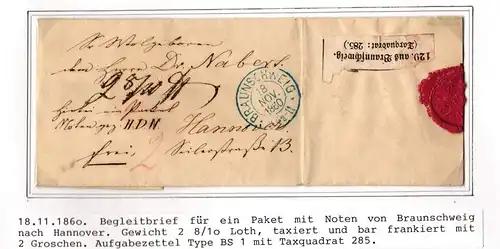 Sr Wolgeboren
dem Herrn Dr. Nabert.
2 8/10
Hierbei ein Paket
Noten gez. H.D.H
Hannover
frei,
2
Seilerstraße 13.
BRAUNSCHWEIG
18
NOV.
1860
129. aus Braunschweig.
(Taxquadrat: 285.)
18.11.186o. Begleitbrief für ein Paket mit Noten von Braunschweig
nach Hannover. Gewicht 2 8/1o Loth, taxiert und bar frankiert mit
2 Groschen. Aufgabezettel Type BS 1 mit Taxquadrat 285.